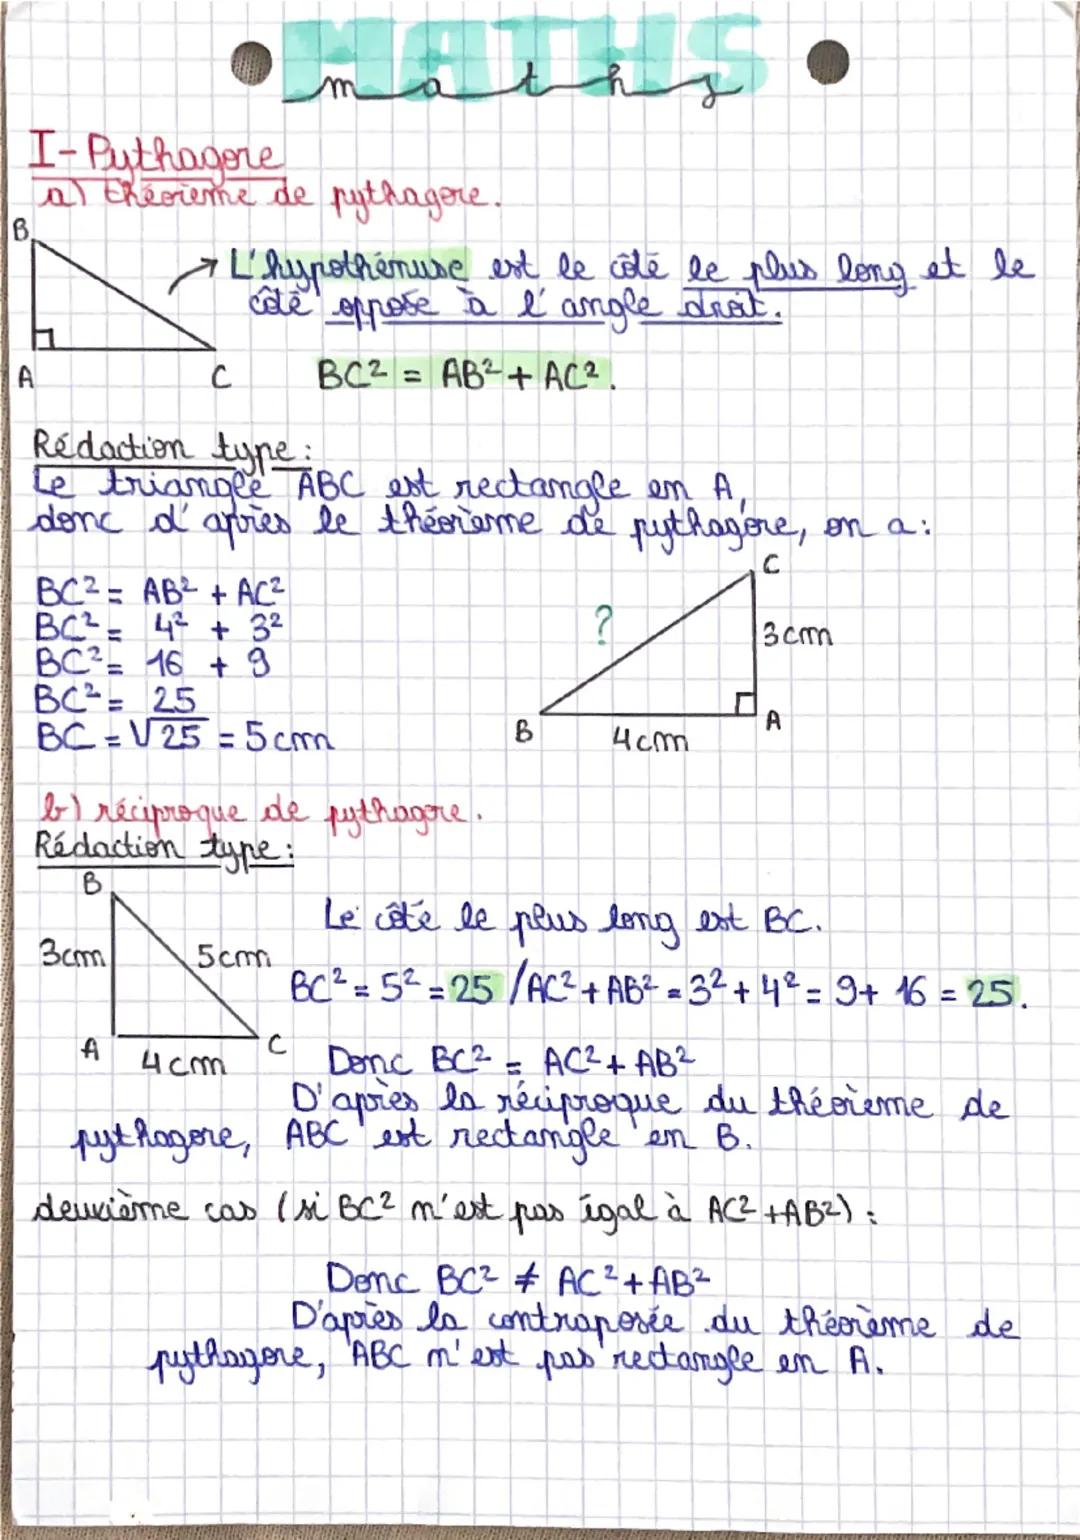 MATHS
maths
I-Pythagore
a) théorème de pythagore.
B
→ L'hypothénuse est le côté le plus long et le
côté opposé à l'angle droit.
A C
BC² = AB² + AC².
Rédaction type :
Le triangle ABC est rectangle en A,
donc d'après le théorème de pythagore, on a :
BC² = AB² + AC²
BC² = 4² + 3²
BC² = 16 + 9
BC² = 25
BC = √25 = 5cm
C
?
3cm
B
A
4cm
b) réciproque de pythagore.
Rédaction type :
B
3cm
5cm
A
C
4cm
Le côté le plus long est BC.
BC² = 5² = 25 / AC² + AB² = 3² + 4² = 9 + 16 = 25.
Donc BC² = AC² + AB²
D'après la réciproque du théorème de
pythagore, ABC est rectangle en B.
deuxième cas (si BC² n'est pas égal à AC² + AB²) :
Donc BC² ≠ AC² + AB²
D'après la contraposée du théorème de
pythagore, ABC n'est pas rectangle en A.